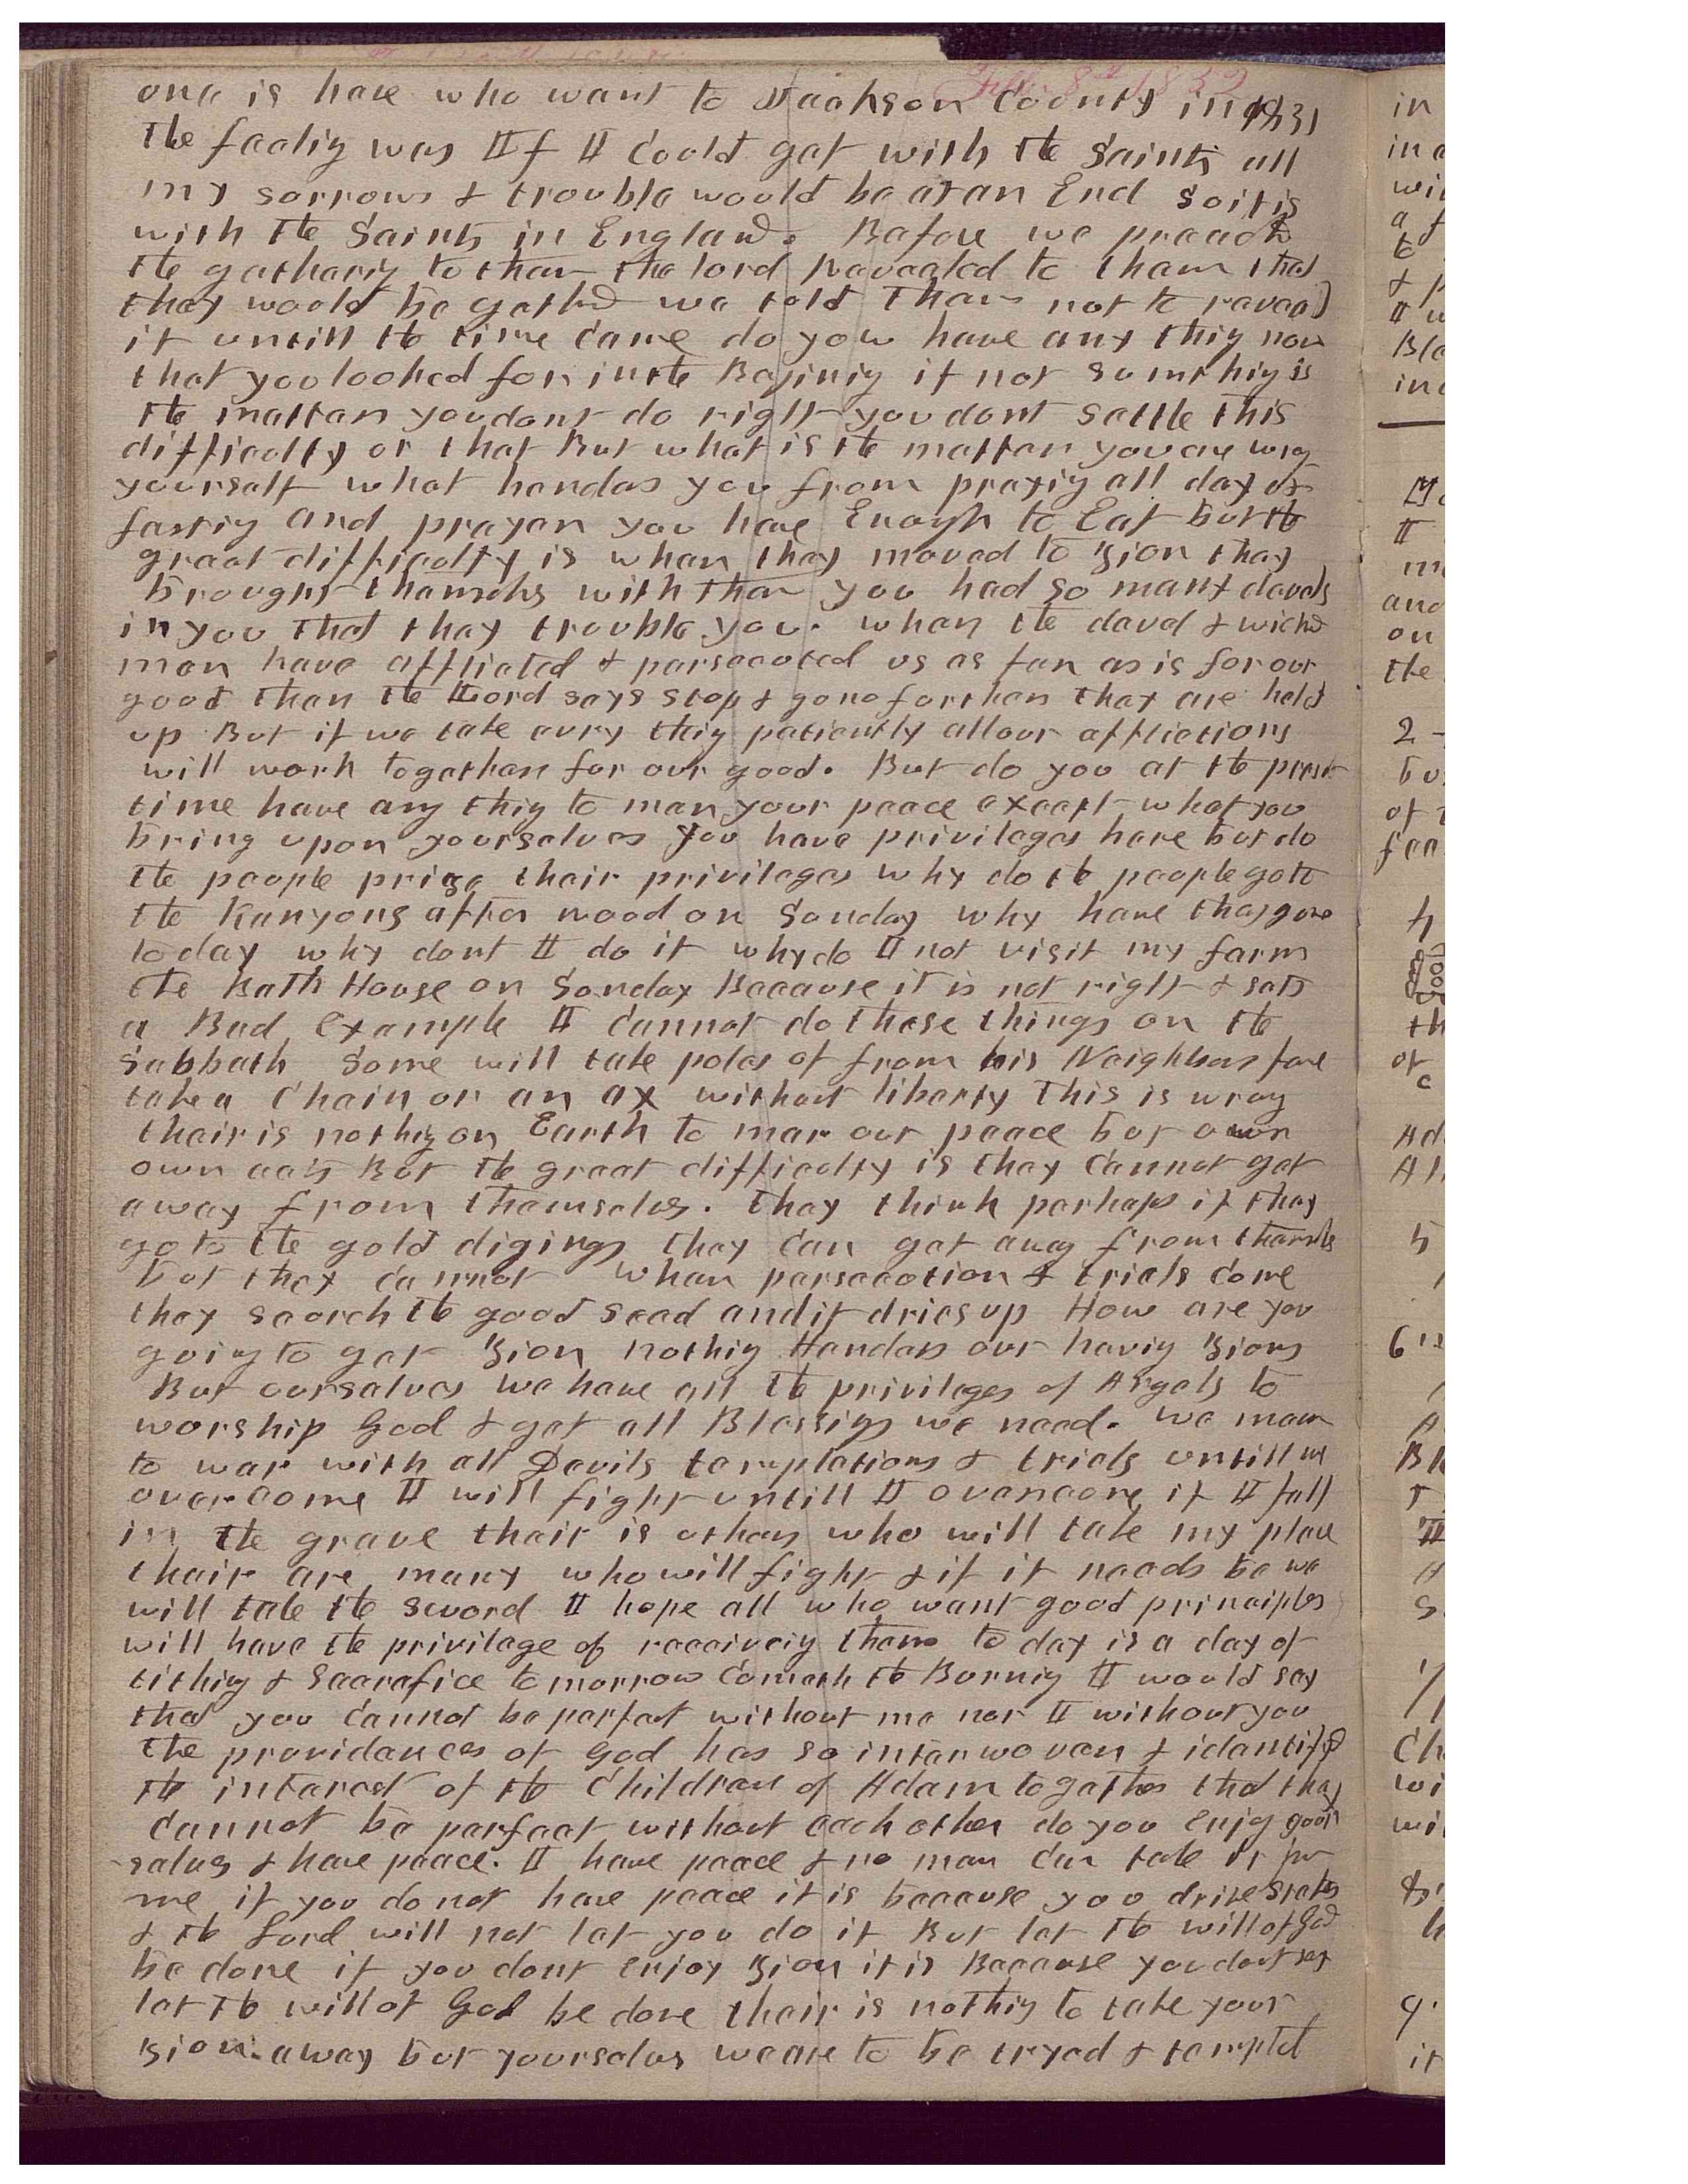 one is here who went to Jackson County in 1831
the feelig was If I Could get with the Saints all
my sorrows & trouble would be at an End So it is
with the Saints in England. Before we preach
the gatherig to them the lord Revealed to them that
they would be gathd we told them not to reveal
it untill the time Came do you have any thig now
that you looked for in the Begining if not Somthig is
the matter you dont do right you dont Settle this
difficulty or that But what is the matter you are wrog
yourself what henders you from prayig all day or
fastig and prayer you have Enough to Eat but the
great difficulty is when they moved to Zion they
brought themselvs with them you had so many devels
in you that they trouble you. when the devel & wickd
men have afflicted & persecuted us as far as is for our
good then the Lord says stop & go no farther they are held
up But if we take evry thig patiently all our afflictions
will work together for our good. But do you at the preset
time have any thig to mar your peace except what you
bring upon yourselves you have privileges here but do
the people prize their privileges why do the people go to
the Kanyons after wood on Sunday why have they gone
to day why dont I do it why do I not visit my farm
the Bath House on Sunday Because it is not right & sets
a Bad Example I Cannot do these things on the
Sabbath Some will take poles of from his Neighbors fence
take a Chain or an ax without liberty This is wrog
thair is nothig on Earth to mar our peace but our
own acts But the great difficulty is they Cannot get
away from themselves. they think perhaps if they
go to the gold digings they Can get away from themselvs
but they Cannot when persecution & trials Come
they scorch the good seed and it dries up How are you
going to get Zion nothig Henders our havig Zion
But ourselves we have all the privileges of Angels to
worship God & get all Blessigs we need. we mean
to war with all Devils temptations & trials untill we
overcome I will fight untill I overcome if I fall
in the grave thair is others who will take my place
thair are many who will fight & if it needs be we
will take the Sword I hope all who want good principles
will have the privilege of receiveig them to day is a day of
tithig & Sacrafice tomorrow Cometh the Burnig I would say
that you Cannot be perfect without me nor I without you
the providences of God has so interwoven & identifyd
the interest of the Children of Adam together that they
Cannot be perfect without each other do you enjoy your
selves & have peace. I have peace & no man Can take it from
me if you do not have peace it is because you drive
& the Lord will not let you do it But let the will of God
be done if you dont enjoy Zion it is Because you dont say
let the will of God be done thair is nothig to take your
Zion away but yourselves we are to be tryed & tempted